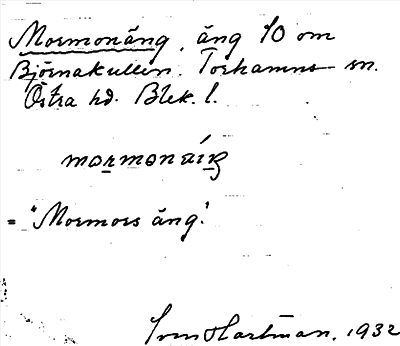 Mormonäng, äng SO om
Björnakullen. Torhamns sn.
Östra hd. Blek. l.
mormonäiŋ
= "Mormors äng".
Sven Hartman. 1932